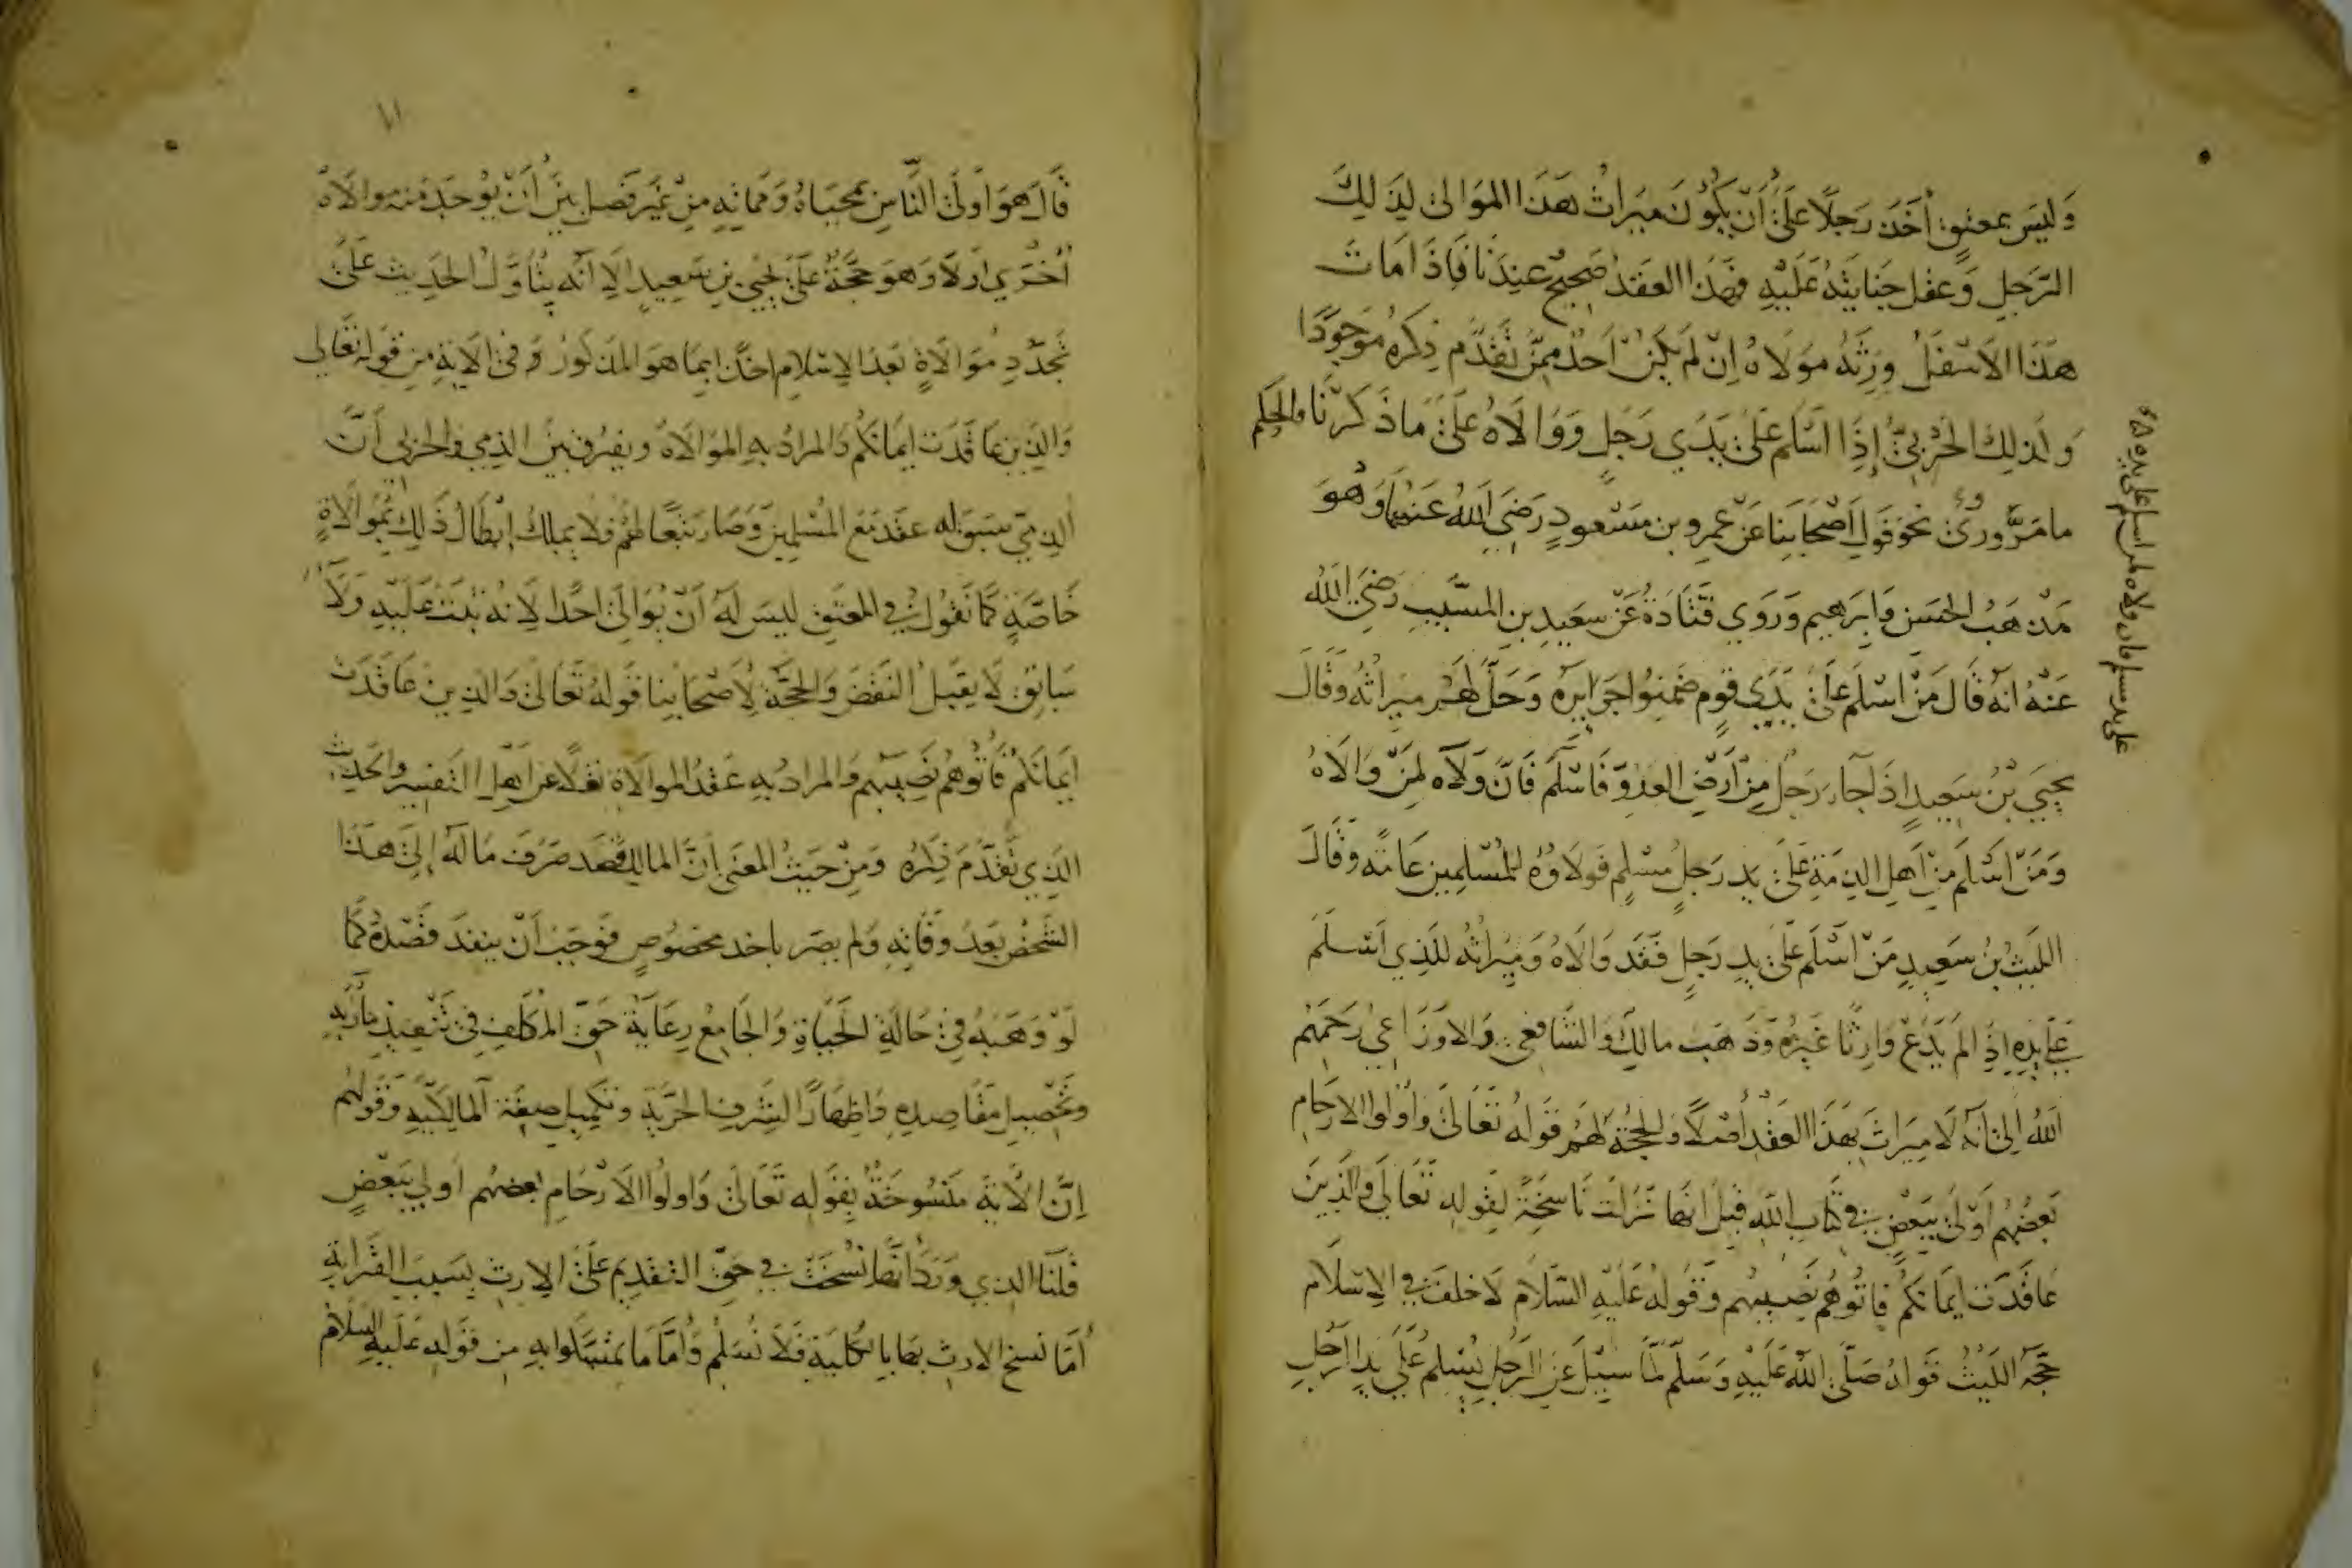 وَليسَ بمعتقٍ أخَذ رَجلًا عَلىٰ أن يكُونَ ميرَاث هَذا الموَالى لذلِكَ
الرّجلِ وَعقل جنايتَهُ عَلَيْهِ فهَذا العَقد صَحِيحٌ عِندَنا فَاِذَا مَاتَ
هَذا الاَسْفلُ وَرِثَهُ مَولَاهُ اِن لم يَكُنْ اَحدٌ مِمّن تقدَّم ذِكرهُ مَوجودًا
وَلذلك الحَرْبيُّ إذَا اَسْلم عَلىٰ يَدَي رَجُلٍ وَوَالَاهُ عَلىٰ مَا ذَكرْنَا والحكم
ما مَرَّ ورُوِيَ نحو قَول اَصْحَابنا عَنْ عمرو بن مَسْعودٍ رَضيَ اللهُ عَنْهُمَا وَهُوَ
مَذهَبُ الحسَن وَابرَهيم وَرَوَي قتَادَةُ عَنْ سَعيدِ بنِ المسَيّبِ رَضيَ الله
عَنْهُ انهُ قَالَ مَنْ اَسْلَم عَلىٰ يَدَي قومٍ ضمنوا جرَايرَهُ وَحَلَّ لهُم ميراثهُ وقَالَ
يحيَي بْنُ سَعيدٍ اذَا جَاءَ رَجُل مِنْ اَرضِ العَدوّ فَاَسْلَمَ فَانَّ وَلَآهُ لِمَنْ وَالَاهُ
وَمَنْ اَسْلَم مِنْ اَهلِ الذِمةِ عَلىٰ يدِ رَجلٍ مُسْلِمٍ فَولَاؤهُ للمُسْلِمِين عَامّة وَقَالَ
الليثُ بنُ سَعيدٍ مَنْ اَسْلَمَ عَلىٰ يدِ رَجلٍ فَقَد وَالَاهُ وَميرَاثُه للَّذي اَسْلَمَ
عَلىٰ يَدِهِ اِذَا لَمْ يَدَعْ وَارِثًا غَيرَهُ وَذَهَب مالِكٌ وَالشَافعي وَالاَوْزَاعيُ رَحمَهُم
اللهُ اِلىٰ اَنَّه لَا ميرَاثَ بهَذا العَقْدِ أصْلًا وَالحجّة لهُم قَولهُ تَعَالىٰ وَاُولوا الاَرحَامِ
بَعضُهُم اَوْلىٰ ببَعْضٍ في كتاب اللهِ قيلَ انهَا نَزَلَت نَاسخَةً لقَولهِ تَعَالَى وَالَّذينَ
عَاقَدَت اَيمانكُم فَاتُوهُم نَصيبهُم وَقولهُ عَلَيْهِ السَّلَامُ لَا حلفَ في الاِسْلَام
حجّة اللَيْثُ قَوله صَلّى الله عَلَيْهِ وَسَلّم لَمّا سُئِلَ عَن الرَّجُلِ يُسْلِمُ عَلىٰ يدِ الرَّجُلِ
قَالَ هوَ اَولىٰ النَّاسِ بمحيَاهُ وَمماتِهِ مِنْ غَير فَصْل بينَ أَنْ يوُجَدَ منه مُوالَاةٌ
أُخْرَي اَولَا وَهوَ حجَّةٌ عَلىٰ يحيى بن سَعيدٍ الَا اَنّه يُتأوَّلُ الحَديث عَلىٰ
تجدُّدِ مُوَالَاةٍ بَعدَ الاِسْلَامِ اخذًا بمَا هوَ المَذكور وَفي الآيَةِ من قوله تعَالى
وَالذين عَاقَدَت ايمَانكُم وَالمرادُ بهِ الموَالَاةُ ويفرُق بينَ الذِمي والحربي أنَّ
الذِميّ سَبَق له عقدٌ مَعَ المُسْلِمِينَ وَصَارَ تبَعًا لهُمْ فلَا يملك اِبْطَالَ ذَلِكَ بموَالَاةٍ
خَاصّةٍ كمَا نَقُولُ في المعتَق لَيسَ لهُ اَنْ يُوالي احدًا لِاَنه يثبتُ عَلَيْهِ وَلَاءٌ
سَابق لَا يقبَلُ النقضَ وَالحجّةُ لِاَصْحَابنا قَولهُ تَعَالىٰ وَالذينَ عَاقَدَت
ايمَانكُم فَاتُوهُم نَصِيبهُم وَالمرادُ بهِ عَقدُ الموالَاةِ نقلًا عن اَهلِ التفسير والحديث
الَّذِي تَقَدَّمَ ذِكرهُ وَمِنْ حَيثُ المعنَى اَنَّ المالك قَصَد صَرْفَ مَالهِ إلىٰ هَذَا
الشَخْصِ بَعدَ وَفَاتِهِ وَلم يضر باحد مخصُوصٍ فَوجَبَ اَنْ ينفذ قَصْدهُ كمَا
لَوْ وَهَبهُ في حَالَةِ الحَيَاةِ وَالجَامعُ رِعَايَة حَقّ المكلّفِ في تَنْفيذ مأرَبهِ
وتحصيل مَقَاصدِهِ وَاِظهَارًا لشَرفِ الحرّيَةِ وتكميل صفَة المالكيّة وَقولهُم
اِنَّ الآيَةَ مَنسُوخَةٌ بقَوله تَعَالىٰ وَاولُوا الاَرْحَامِ بعضهُم اَولي ببَعْضٍ
قلنا الذي وَرَدَ أنّهَا نُسخَتْ في حَقّ التقديم عَلىٰ الاِرث بسَبَبِ القَرَابةِ
أمَّا نسخ الارث بهَا بالكُليَةِ فَلَا نُسَلّم وَأمَّا مَا تمسّكوا بهِ من قَولهِ عَلَيهِ السلام